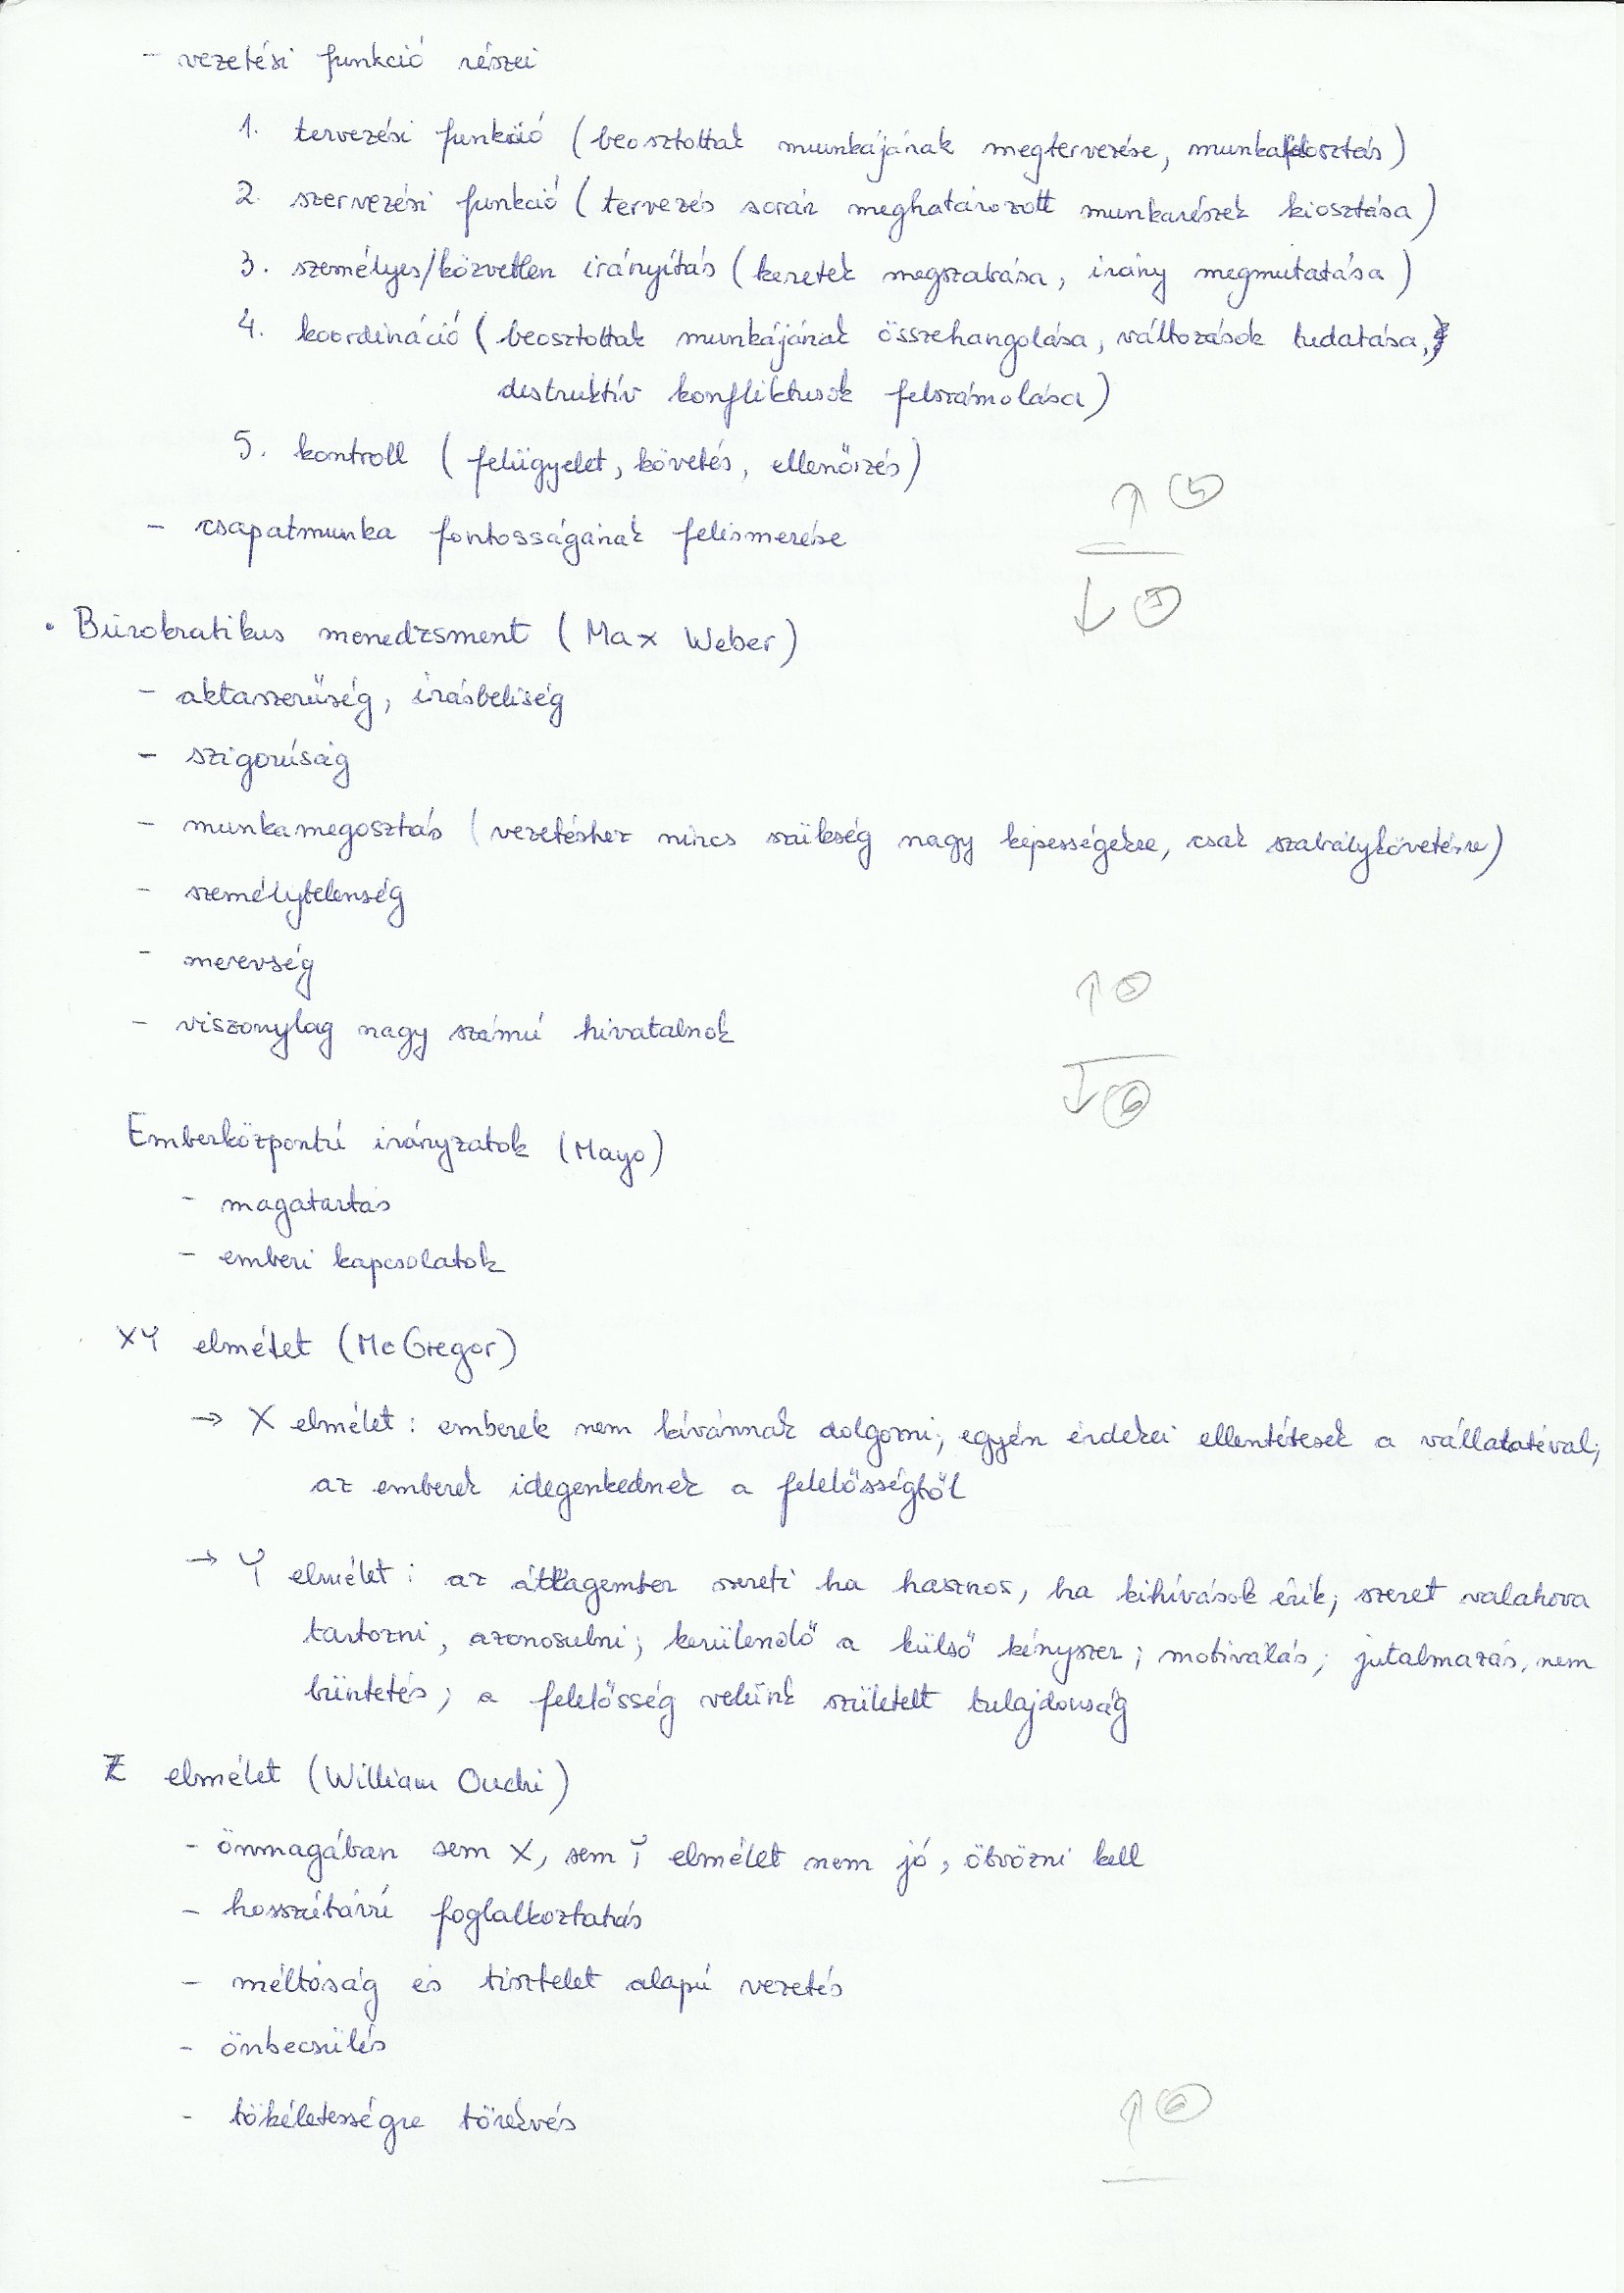 - vezetési funkció részei
1. tervezési funkció (beosztottak munkájának megtervezése, munkafelosztás)
2. szervezési funkció (tervezés során meghatározott munkarészek kiosztása)
3. személyes/közvetlen irányítás (keretek megszabása, irány megmutatása)
4. koordináció (beosztottak munkájának összehangolása, változások tudatása,
destruktív konfliktusok felszámolása)
5. kontroll (felügyelet, követés, ellenőrzés)
↑ 5
- csapatmunka fontosságának felismerése
↓
• Bürokratikus menedzsment (Max Weber)
- aktaszerűség, írásbeliség
- szigorúság
- munkamegosztás (vezetéshez nincs szükség nagy képességekre, csak szabálykövetésre)
- személytelenség
- merevség
↑
- viszonylag nagy számú hivatalnok
↓ 6
Emberközpontú irányzatok (Mayo)
- magatartás
- emberi kapcsolatok
XY elmélet (McGregor)
→ X elmélet: emberek nem kívánnak dolgozni; egyén érdekei ellentétesek a vállalatéval;
az emberek idegenkednek a felelősségtől
→ Y elmélet: az átlagember szereti ha hasznos, ha kihívások érik; szeret valahova
tartozni, azonosulni; kerülendő a külső kényszer; motiválás, jutalmazás, nem
büntetés; a felelősség velünk született tulajdonság
Z elmélet (William Ouchi)
- önmagában sem X, sem Y elmélet nem jó, ötvözni kell
- hosszútávú foglalkoztatás
- méltóság és tisztelet alapú vezetés
- önbecsülés
- tökéletességre törekvés
↑ 6